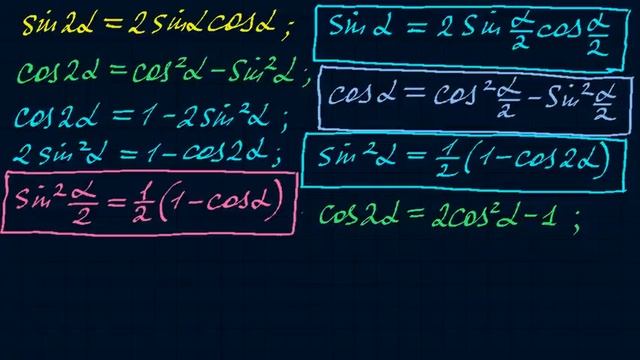 sin2α = 2 sinα cosα ;
cos2α = cos²α - sin²α ;
cos2α = 1 - 2sin²α ;
2 sin²α = 1 - cos2α ;
sin² α/2 = 1/2 (1 - cosα)
sin α = 2 sin α/2 cos α/2
cosα = cos² α/2 - sin² α/2
sin²α = 1/2 (1 - cos2α)
cos2α = 2cos²α - 1 ;